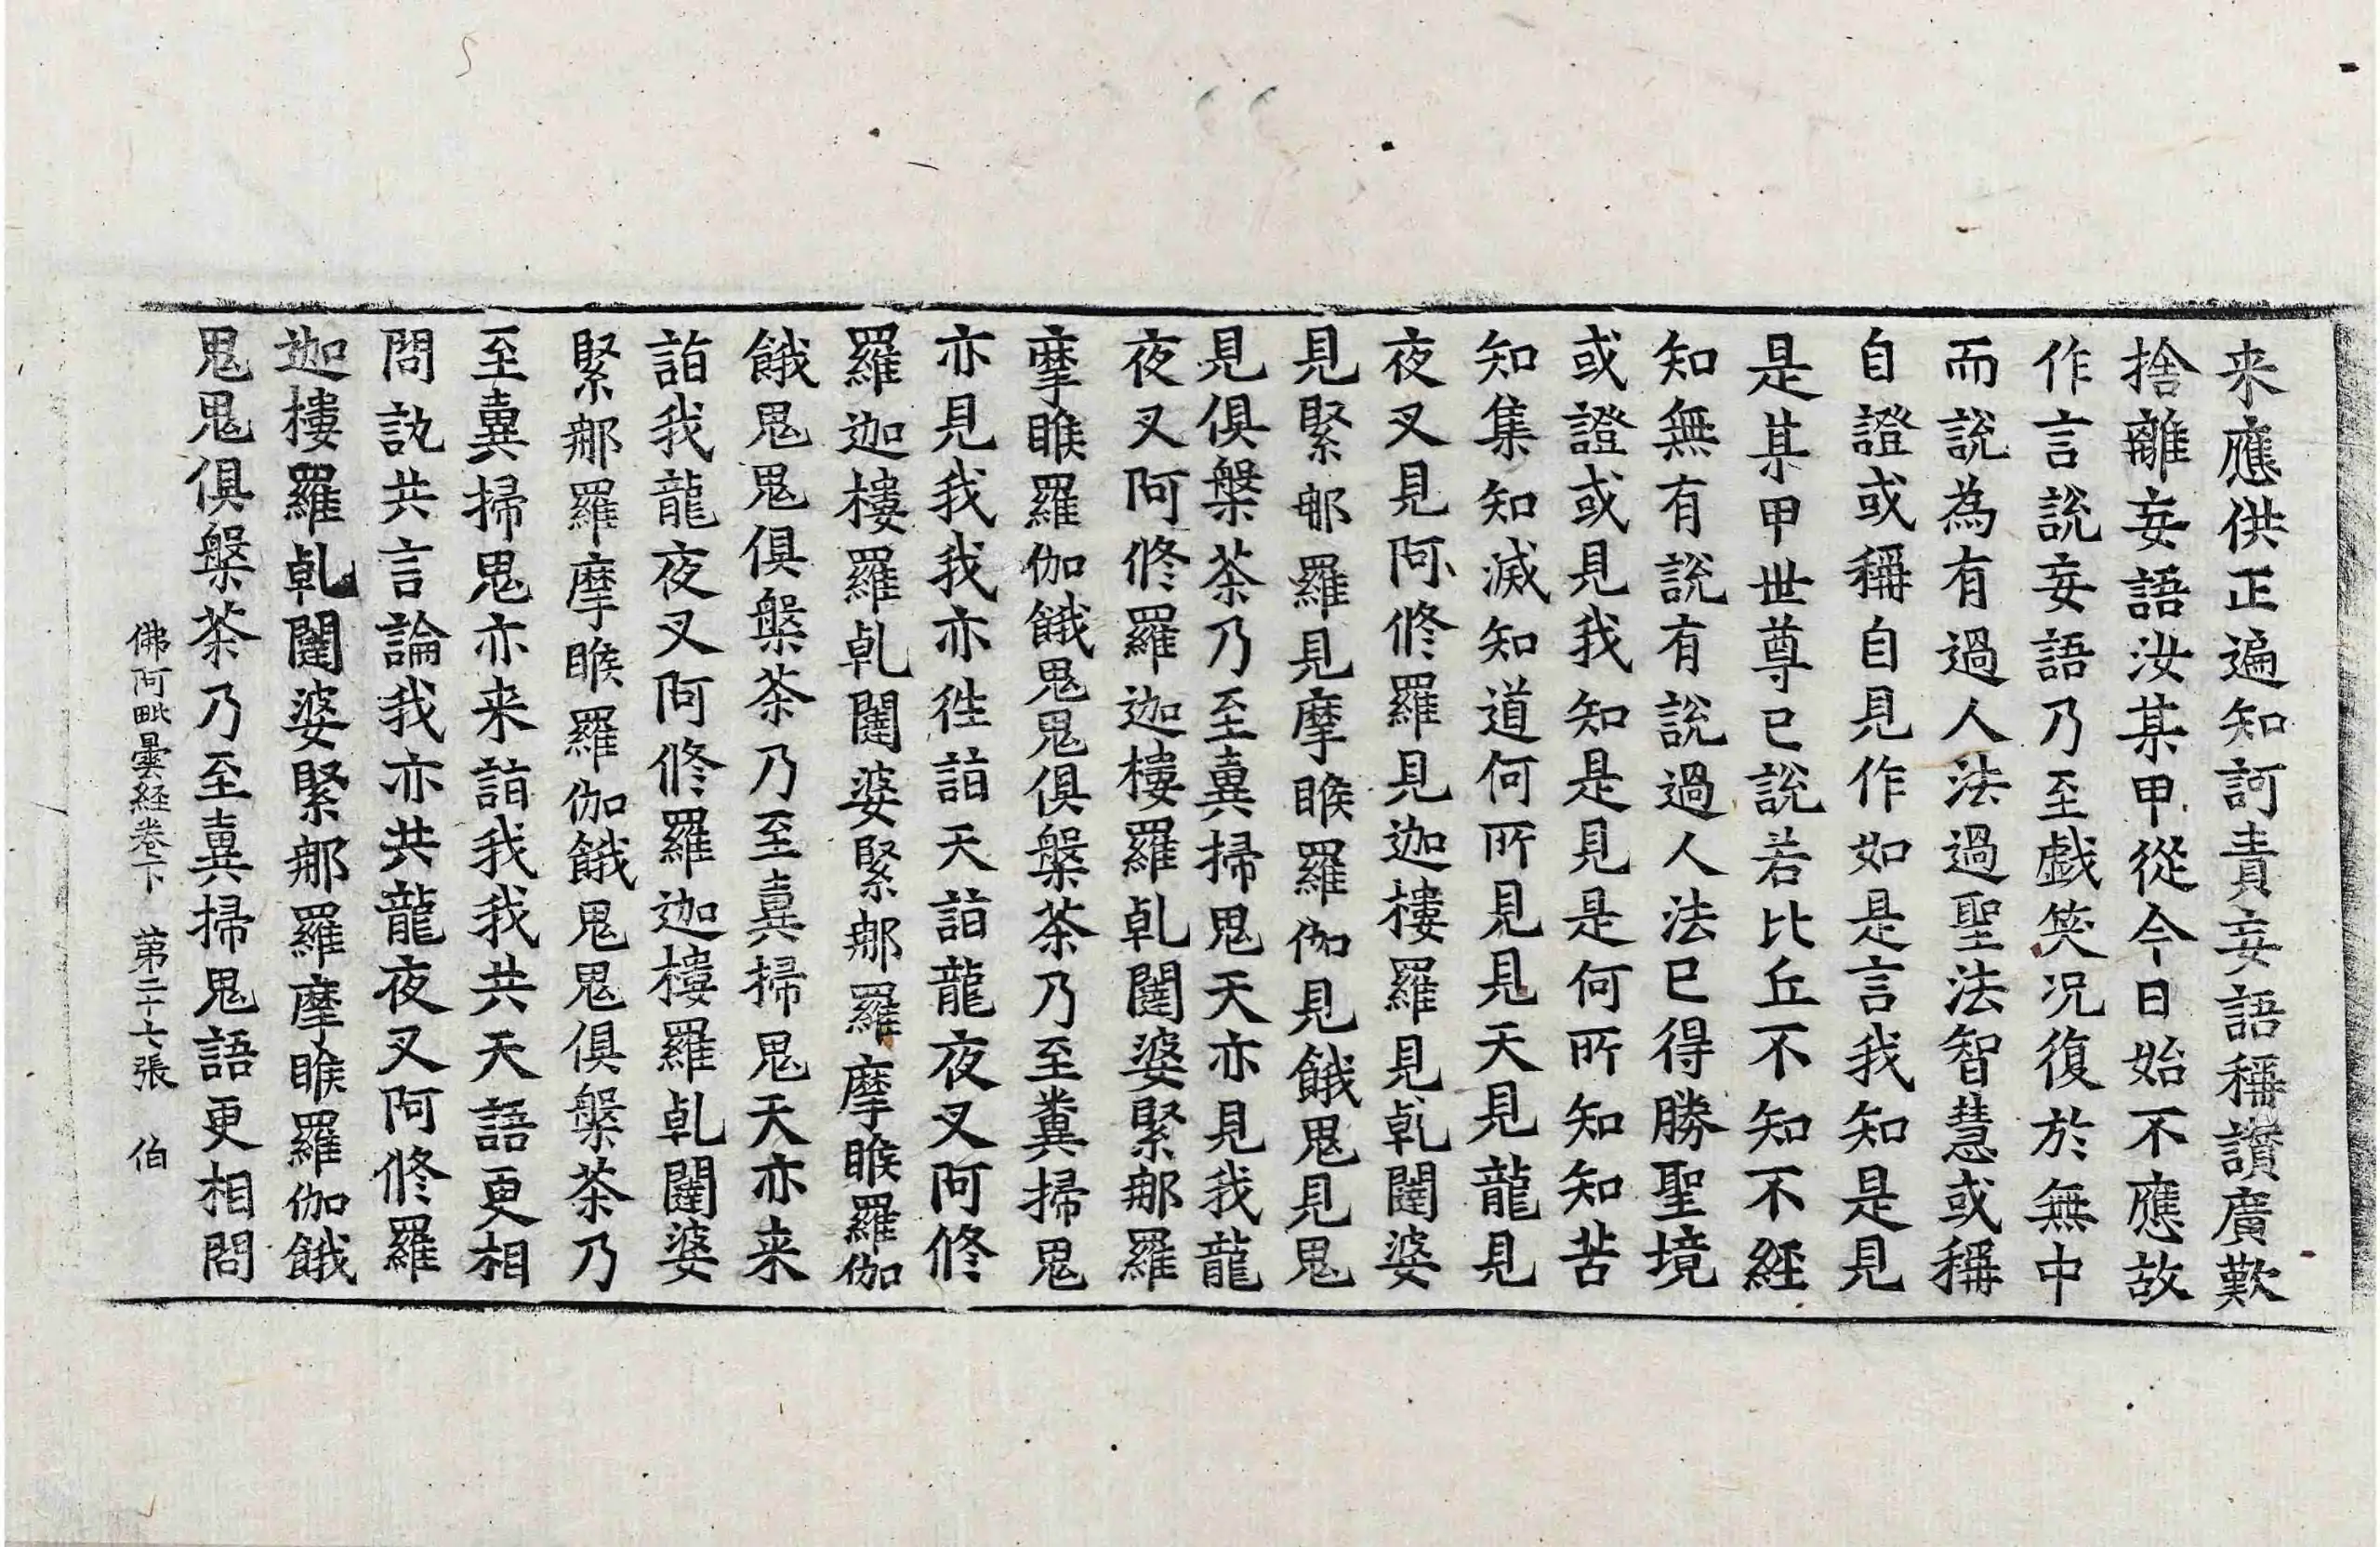 来應供正遍知訶責妄語稱讚廣歎
捨離妄語汝某甲從今日始不應故
作言說妄語乃至戲笑况復於無中
而說為有過人法過聖法智慧或稱
自證或稱自見作如是言我知是見
是某甲世尊已說若比丘不知不經
知無有說有說過人法已得勝聖境
或證或見我知是見是何所知知苦
知集知滅知道何所見見天見龍見
夜叉見阿修羅見迦樓羅見乹闥婆
見緊那羅見摩睺羅伽見餓鬼見鬼
見俱槃茶乃至糞掃鬼天亦見我龍
夜叉阿修羅迦樓羅乹闥婆緊那羅
摩睺羅伽餓鬼鬼俱槃茶乃至糞掃鬼
亦見我我亦徃詣天詣龍夜叉阿修
羅迦樓羅乹闥婆緊那羅摩睺羅伽
餓鬼鬼俱槃茶乃至糞掃鬼天亦来
詣我龍夜叉阿修羅迦樓羅乹闥婆
緊那羅摩睺羅伽餓鬼鬼俱槃茶乃
至糞掃鬼亦来詣我我共天語更相
問訊共言論我亦共龍夜叉阿修羅
迦樓羅乹闥婆緊那羅摩睺羅伽餓
鬼鬼俱槃茶乃至糞掃鬼語更相問
佛阿毗曇経卷下 第二十七張 伯